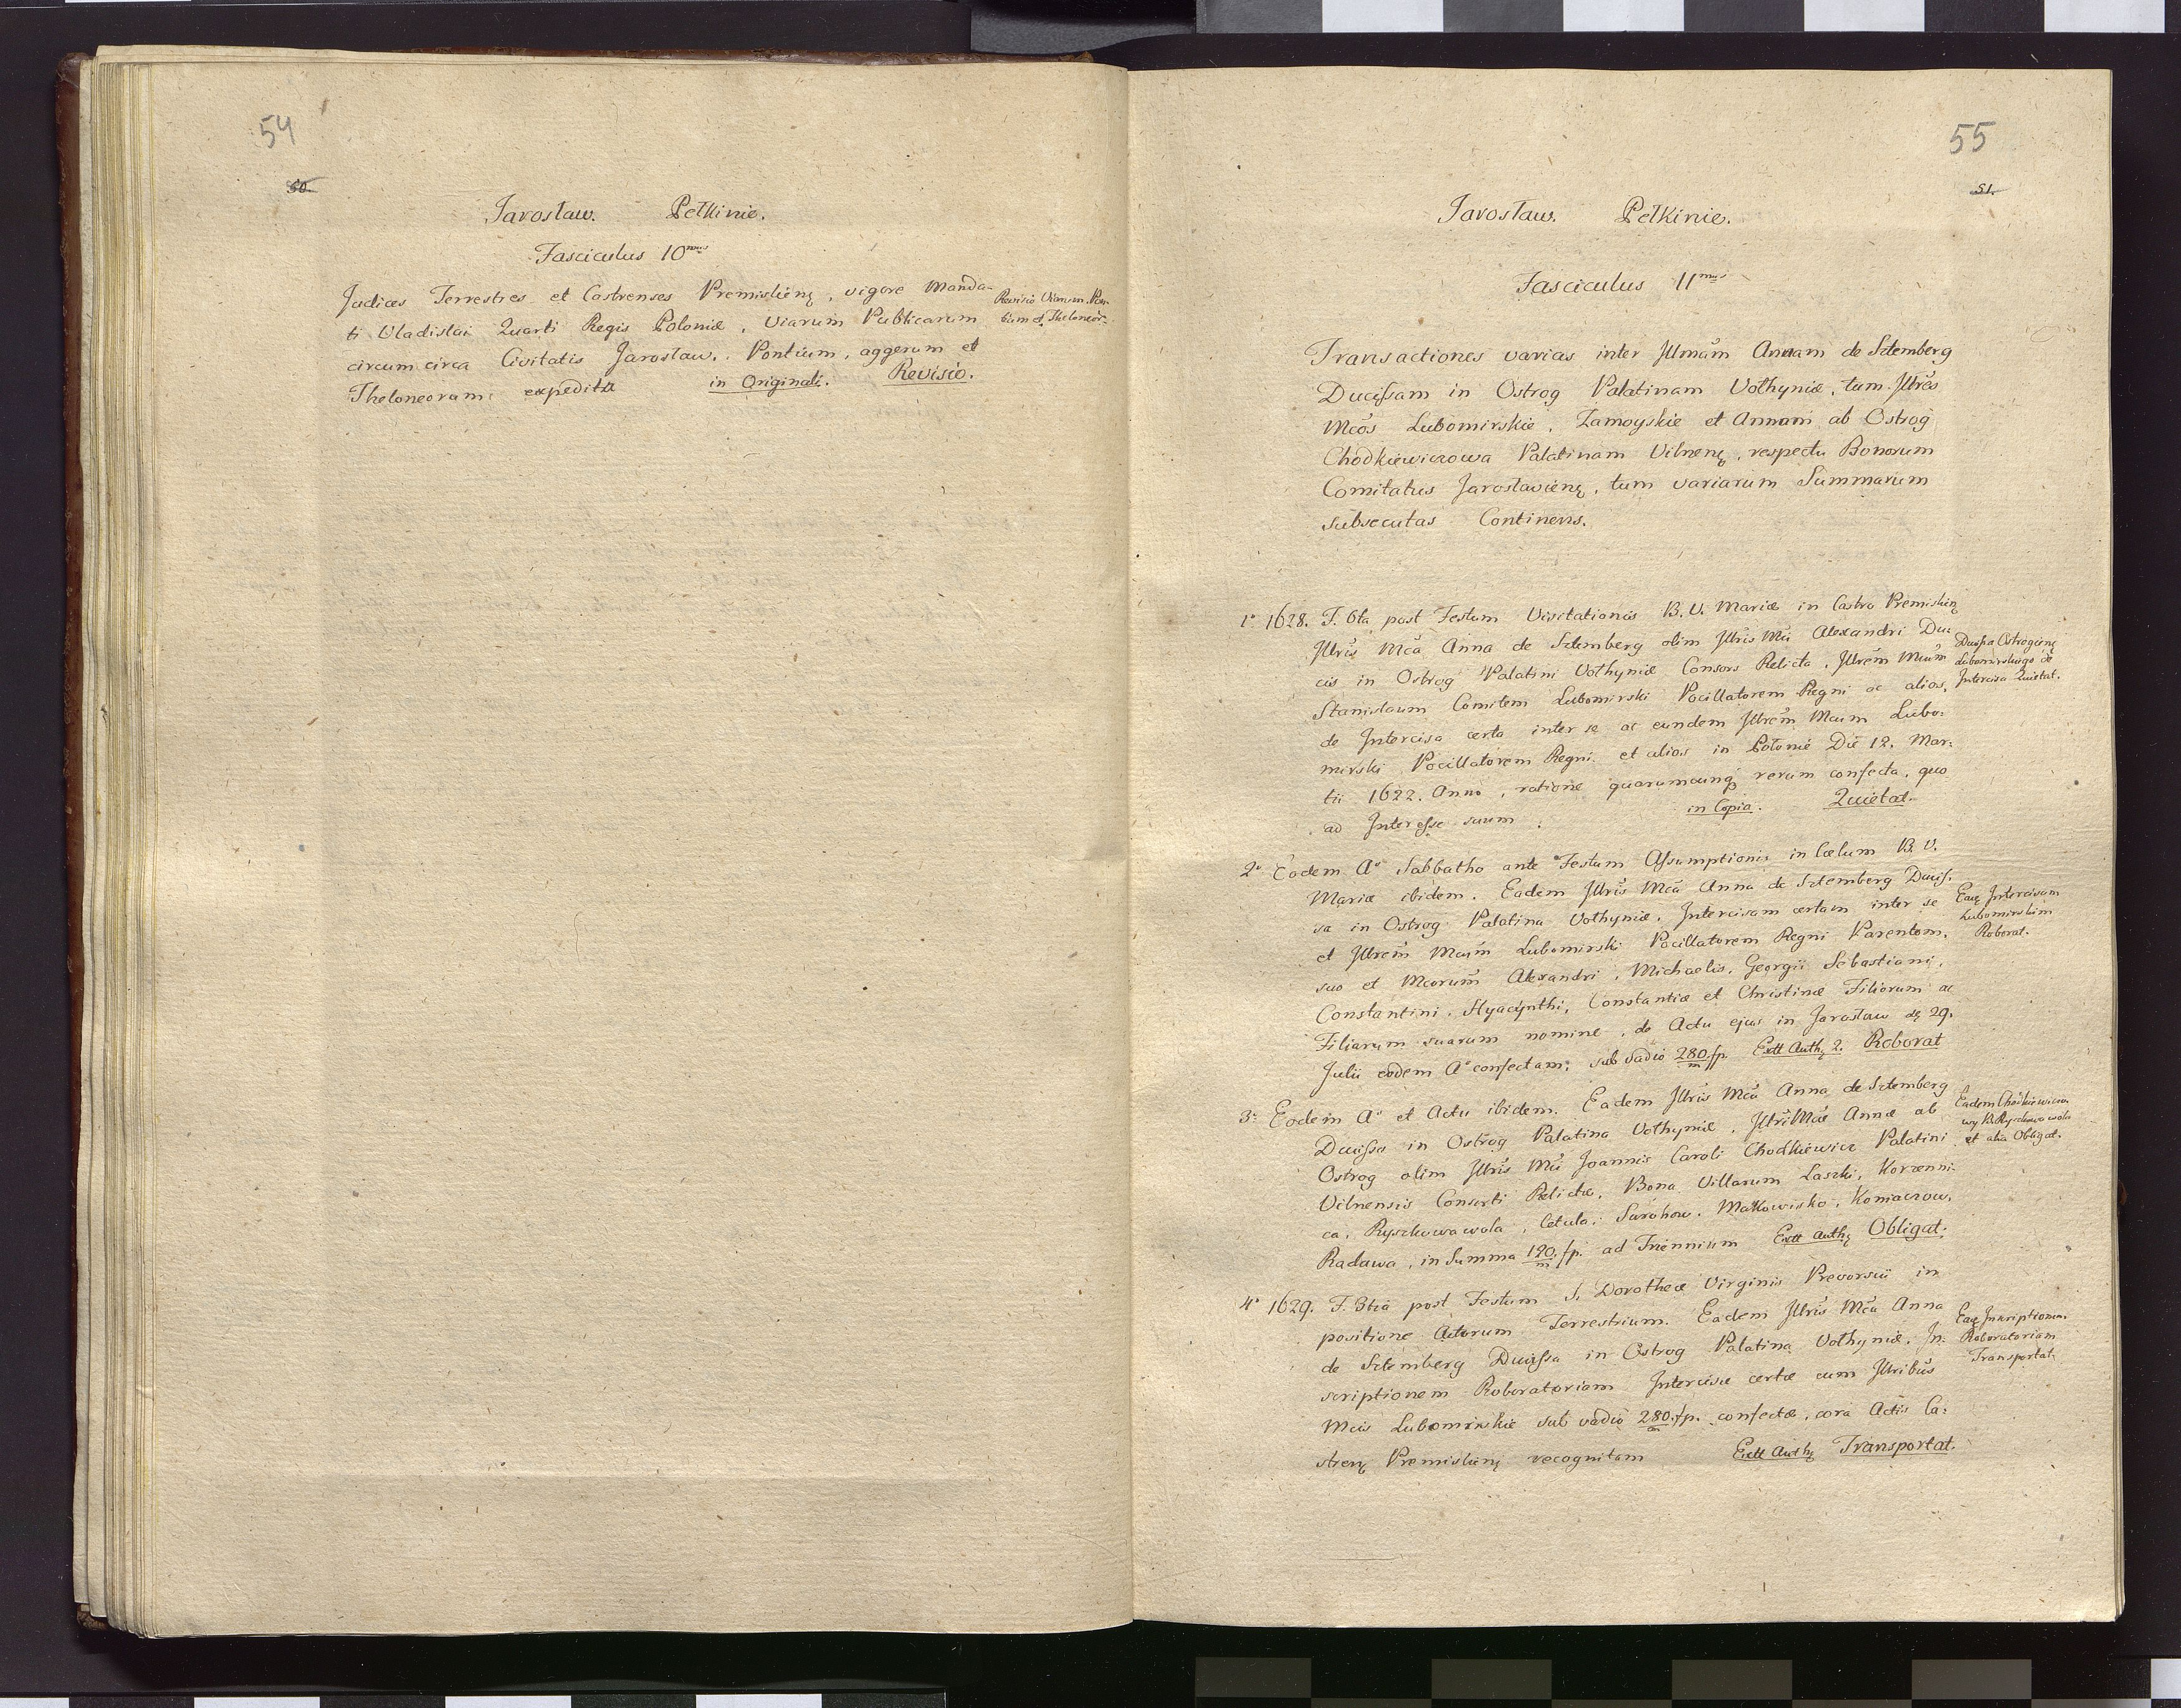 54
50.
Jarosław. Pełkinie.
Fasciculus 10mus
Judices Terrestres et Castrenses Premislienę, vigore Manda-
ti Vladislai Quarti Regis Poloniæ, Viarum Publicarum
circum circa Civitatis Jarosław, Pontium, aggerum et
Theloneorum expedita in Originali. Revisio.
Revisio Viarum Pon-
tium et Theloneor:
55
51.
Jarosław. Pełkinie.
Fasciculus 11mus
Transactiones varias inter Jllmam Annam de Sztemberg
Ducissam in Ostrog Palatinam Vołhyniæ, tum Jllres
Mcos Lubomirskie, Zamoyskie et Annam ab Ostrog
Chodkiewiczowa Palatinam Vilnenę, respectu Bonorum
Comitatus Jarosłavienę, tum variarum Summarum
subsecutas Continens.
1o 1628. F. 6ta post Festum Visitationis B. V. Mariæ in Castro Premislienę
Jllris Mca Anna de Sztemberg olim Jllris Mci Alexandri Du-
cis in Ostrog Palatini Vołhyniæ Consors Relicta, Jllrem Mcum
Stanislaum Comitem Lubomirski Pocillatorem Regni ac alios,
de Intercisa certa inter se ac eundem Jllrem Mcum Lubo-
mirski Pocillatorem Regni et alios in Połonie Die 12. Mar-
tii 1622. Anno, ratione quarumcunq rerum confecta, quo
ad Interesse suum. in Copia. Quietat.
Ducissa Ostrogienę
Lubomirskiego de
Intercisa Quietat.
2o Eodem Ao Sabbatho ante Festum Assumptionis in Cœlum B. V.
Mariæ ibidem. Eadem Jllris Mca Anna de Sztemberg Ducis-
sa in Ostrog Palatina Vołhyniæ, Intercisam certam inter se
et Jllrem Mcum Lubomirski Pocillatorem Regni Parentem,
suo et Mcorum Alexandri, Michaelis, Georgii Sebastiani,
Constantini, Hyacynthi, Constantiæ et Christinæ Filiorum ac
Filiarum suarum nomine, de Actu ejus in Jarosław dę 29.
Julii eodem Ao confectam; sub vadio 280/m fp. Extt Auth; 2. Roborat
Eaę Intercisam
Lubomirskim
Roborat.
3o Eodem Ao et Actu ibidem. Eadem Jllris Mca Anna de Sztemberg
Ducissa in Ostrog Palatina Vołhyniæ, Jllri Mcæ Annæ ab
Ostrog olim Jllris Mci Joannis Caroli Chodkiewicz Palatini
Vilnensis Consorti Relictæ, Bona Villarum Laszki, Korzenni-
ca, Ryszkowa wola, Cetula, Surohow, Makowisko, Koniaczow,
Radawa, in Summa 120/m fp. ad Triennium Extt Authę Obligat.
Eadem Chodkiewiczo-
wy B. Ryszkowa wola
et alia Obligat.
4o 1629. F. 3tia post Festum S. Dorotheæ Virginis Prevorsii in
positione Actorum Terrestrium. Eadem Jllris Mca Anna
de Sztemberg Ducissa in Ostrog Palatina Vołhyniæ. In-
scriptionem Roboratoriam Intercisæ certæ cum Jllribus
Mcis Lubomirskie sub vadio 280/m fp. confectæ, cora Actis Ca-
strenę Premislienę recognitam Extt Authę Transportat.
Eaę Inscriptionem
Roboratoriam
Transportat.